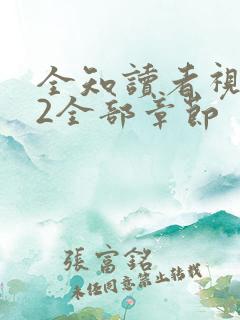 全知讀者視
2全部章節
張富銘
未经同意禁止转载